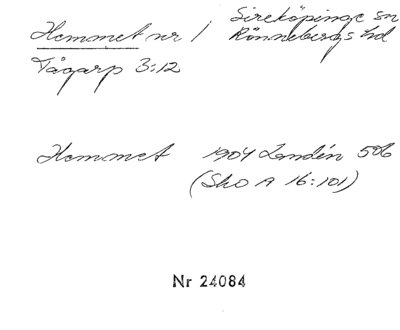 Hemmet nr 1 Sireköpinge sn
Rönnebergs hd
Tågarp 3:12
Hemmet 1904 Landén 506
(Sko A 16:101)
Nr 24084